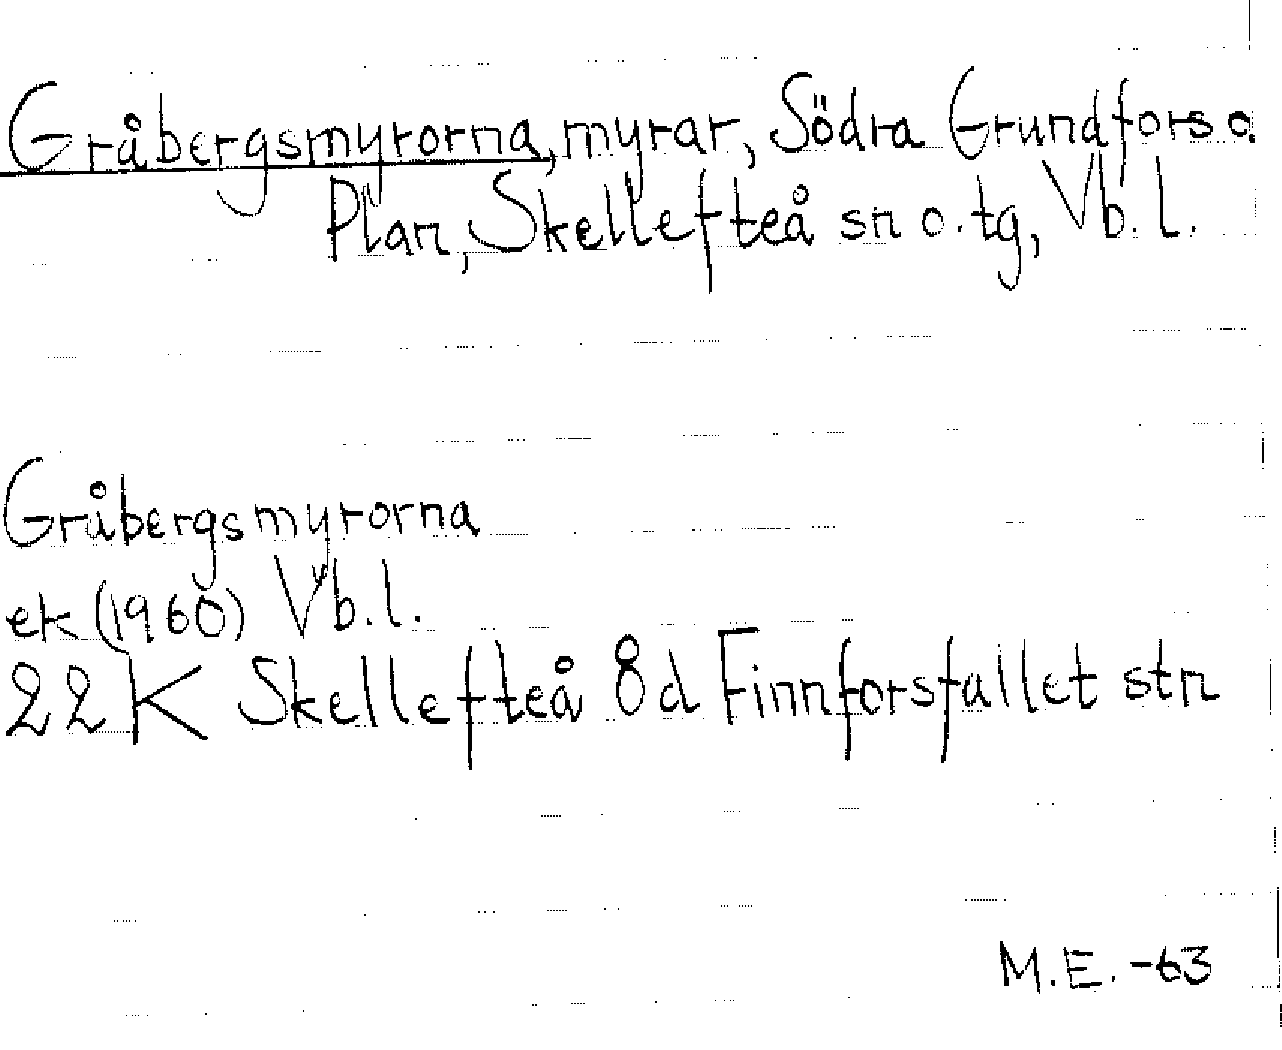 Gråbergsmyrorna, myrar, Södra Grundfors o.
Plan, Skellefteå sn o. tg, Vb. l.
Gråbergsmyrorna
ek (1960) Vb. l.
22 K Skellefteå 8 d Finnforsfallet stn
M.E. -63